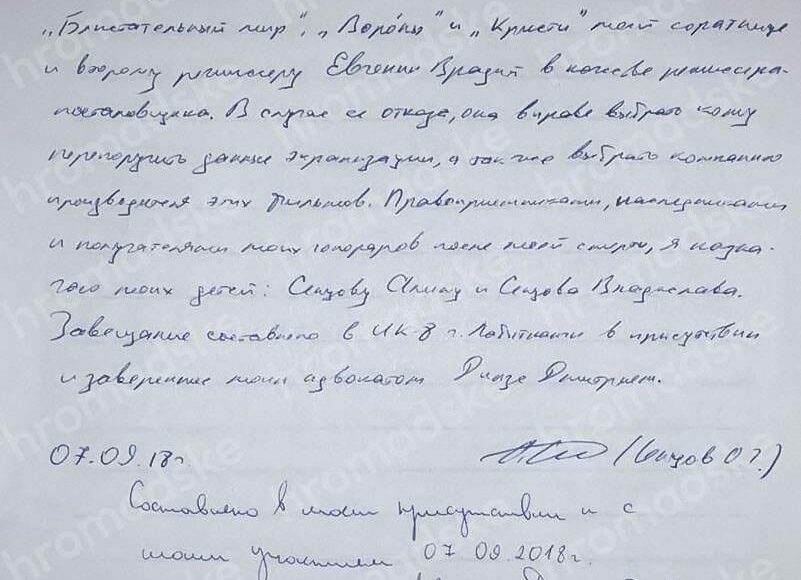 „Блистательный мир", „Воро́ны" и „Кристи" моей соратнице
и второму режиссеру Евгении Врадий в качестве режиссера-
постановщика. В случае ее отказа, она вправе выбрать кому
перепоручить данные экранизации, а так же выбрать компанию
производителя этих фильмов. Правоприемниками, наследниками
и получателями моих гонораров после моей смерти, я назна-
чаю моих детей: Сенцову Алину и Сенцова Владислава.
Завещание составлено в ИК-8 г. Лабытнанги в присутствии
и заверенные моим адвокатом Динзе Дмитрием.
07.09.18г. (Сенцов О Г.)
Составлено в моем присутствии и с
моим участием 07 09 2018г.
hromadske